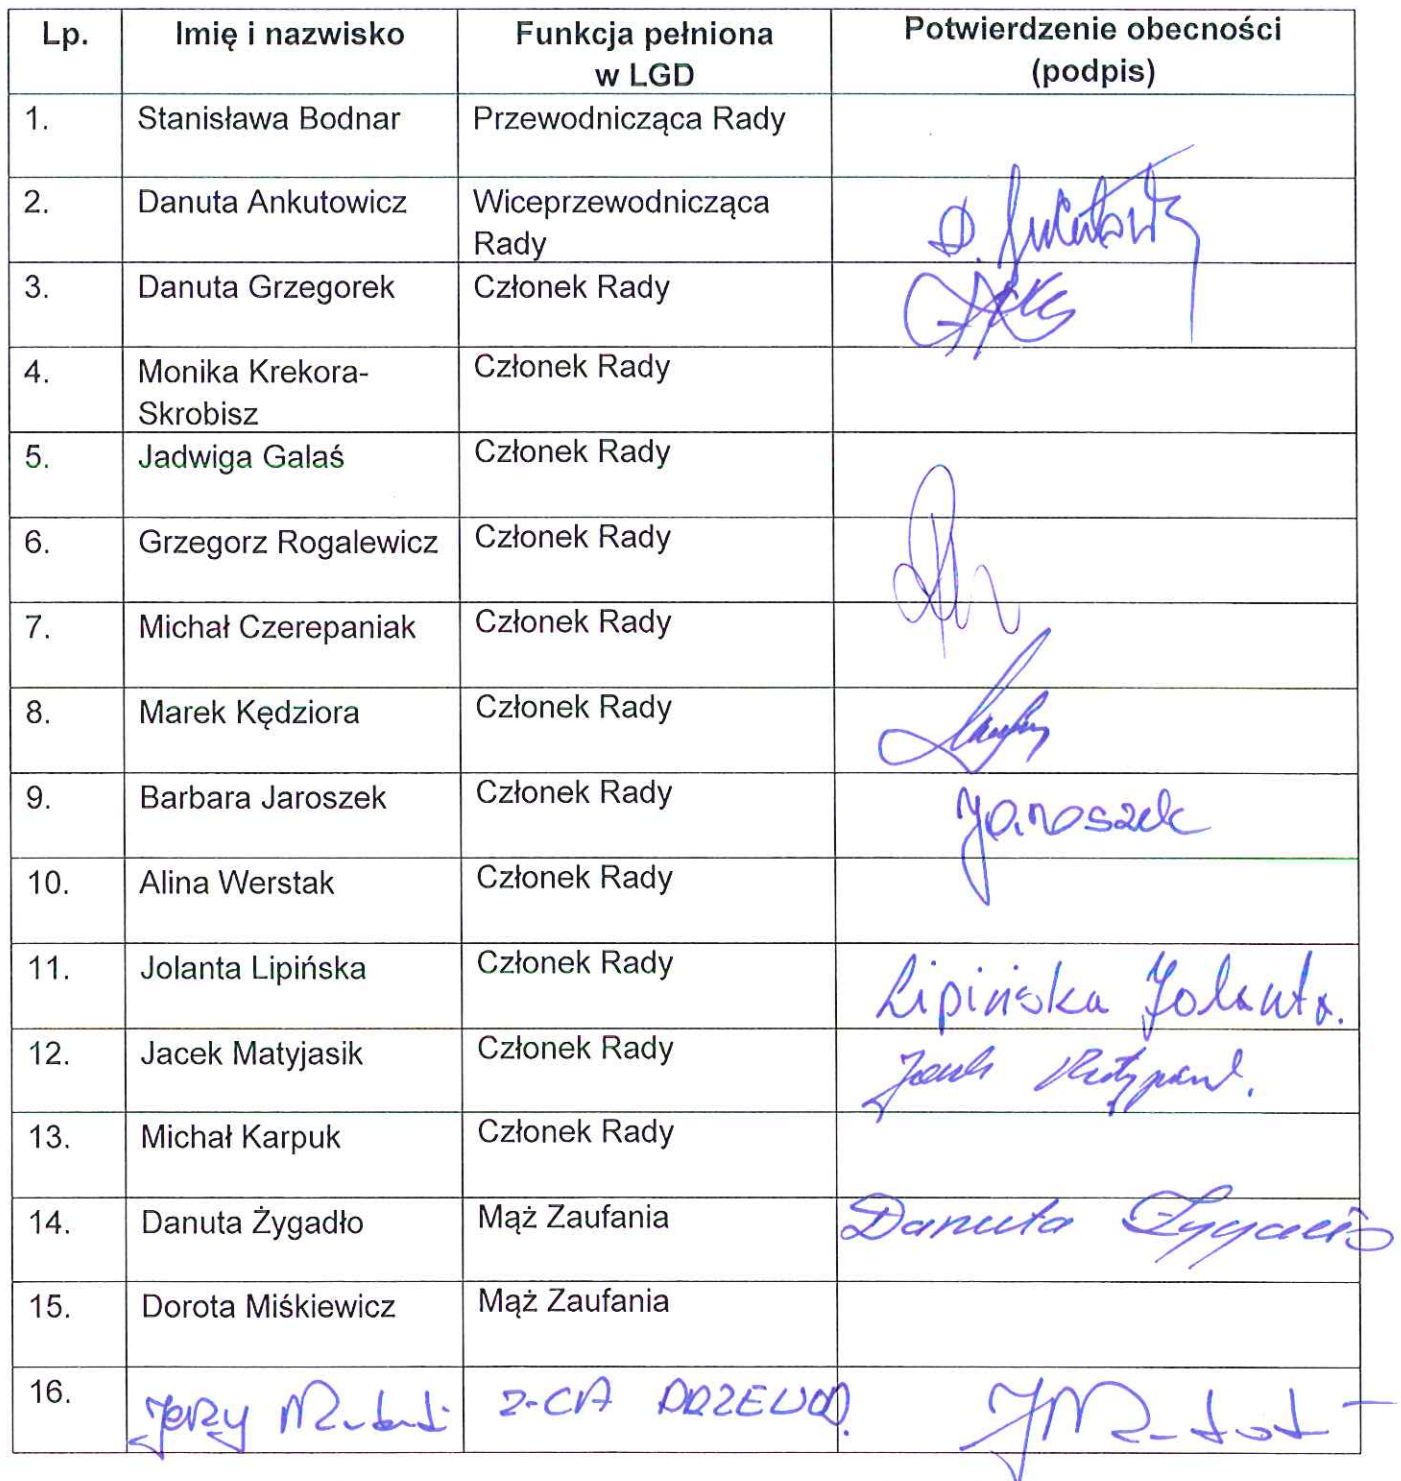 Lp. Imię i nazwisko Funkcja pełniona w LGD Potwierdzenie obecności (podpis)
1. Stanisława Bodnar Przewodnicząca Rady
2. Danuta Ankutowicz Wiceprzewodnicząca Rady D.
3. Danuta Grzegorek Członek Rady
4. Monika Krekora-Skrobisz Członek Rady
5. Jadwiga Galaś Członek Rady
6. Grzegorz Rogalewicz Członek Rady
7. Michał Czerepaniak Członek Rady
8. Marek Kędziora Członek Rady
9. Barbara Jaroszek Członek Rady Jaroszek
10. Alina Werstak Członek Rady
11. Jolanta Lipińska Członek Rady Lipińska Jolanta.
12. Jacek Matyjasik Członek Rady
13. Michał Karpuk Członek Rady
14. Danuta Żygadło Mąż Zaufania Danuta
15. Dorota Miśkiewicz Mąż Zaufania
16. Jerzy Z-CA PRZEWOD.